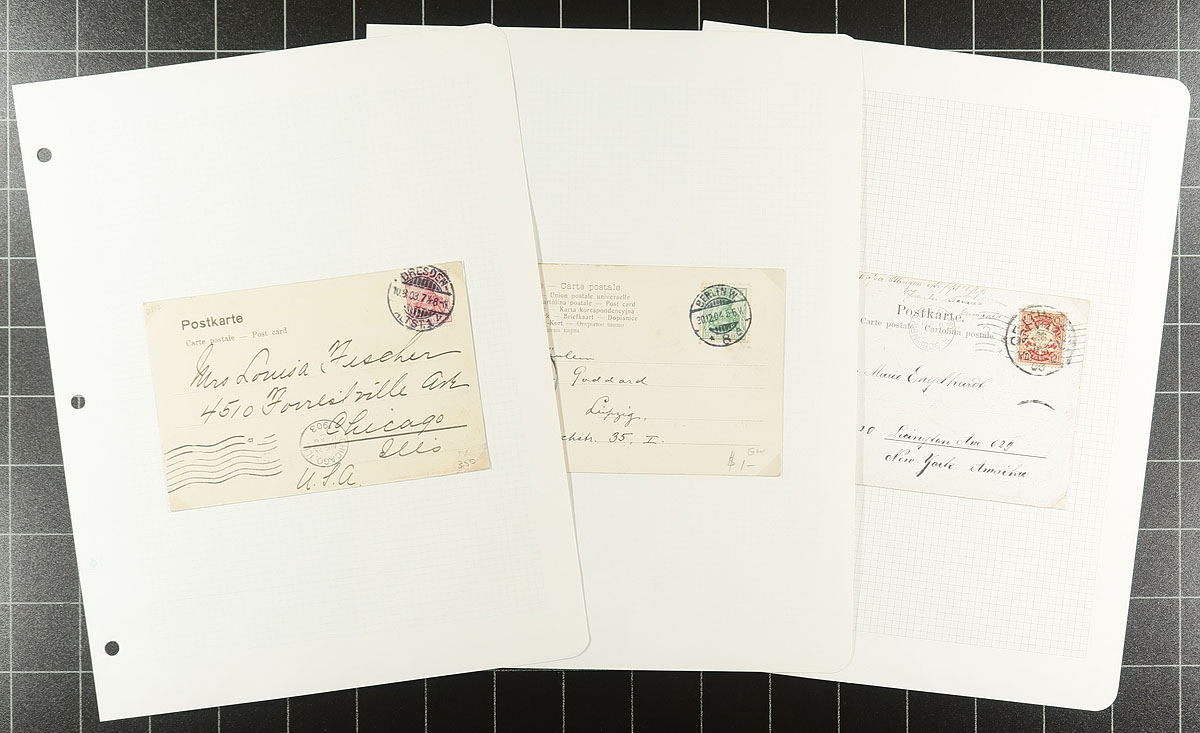 DRESDEN
10.8.03.7½-8N
ALTST.1
Postkarte
Carte postale — Post card
Mrs Louisa Fischer
4510 Forrestville Ave
Chicago
Ills
U.S.A.
1903
CHICAGO
350
— Carte postale —
Union postale universelle
Cartolina postale — Post card
Karta korespondencyjna
— Briefkaart — Dopisnice
-Kort —
BERLIN W.
30.12.04.5-6N.
* 8 a
Goddard
Leipzig.
chstr. 35. I.
$1-
Postkarte.
Carte postale. Cartolina postale
03
10
Marie Engelhardt
Lexington Ave 629
New York Amerika